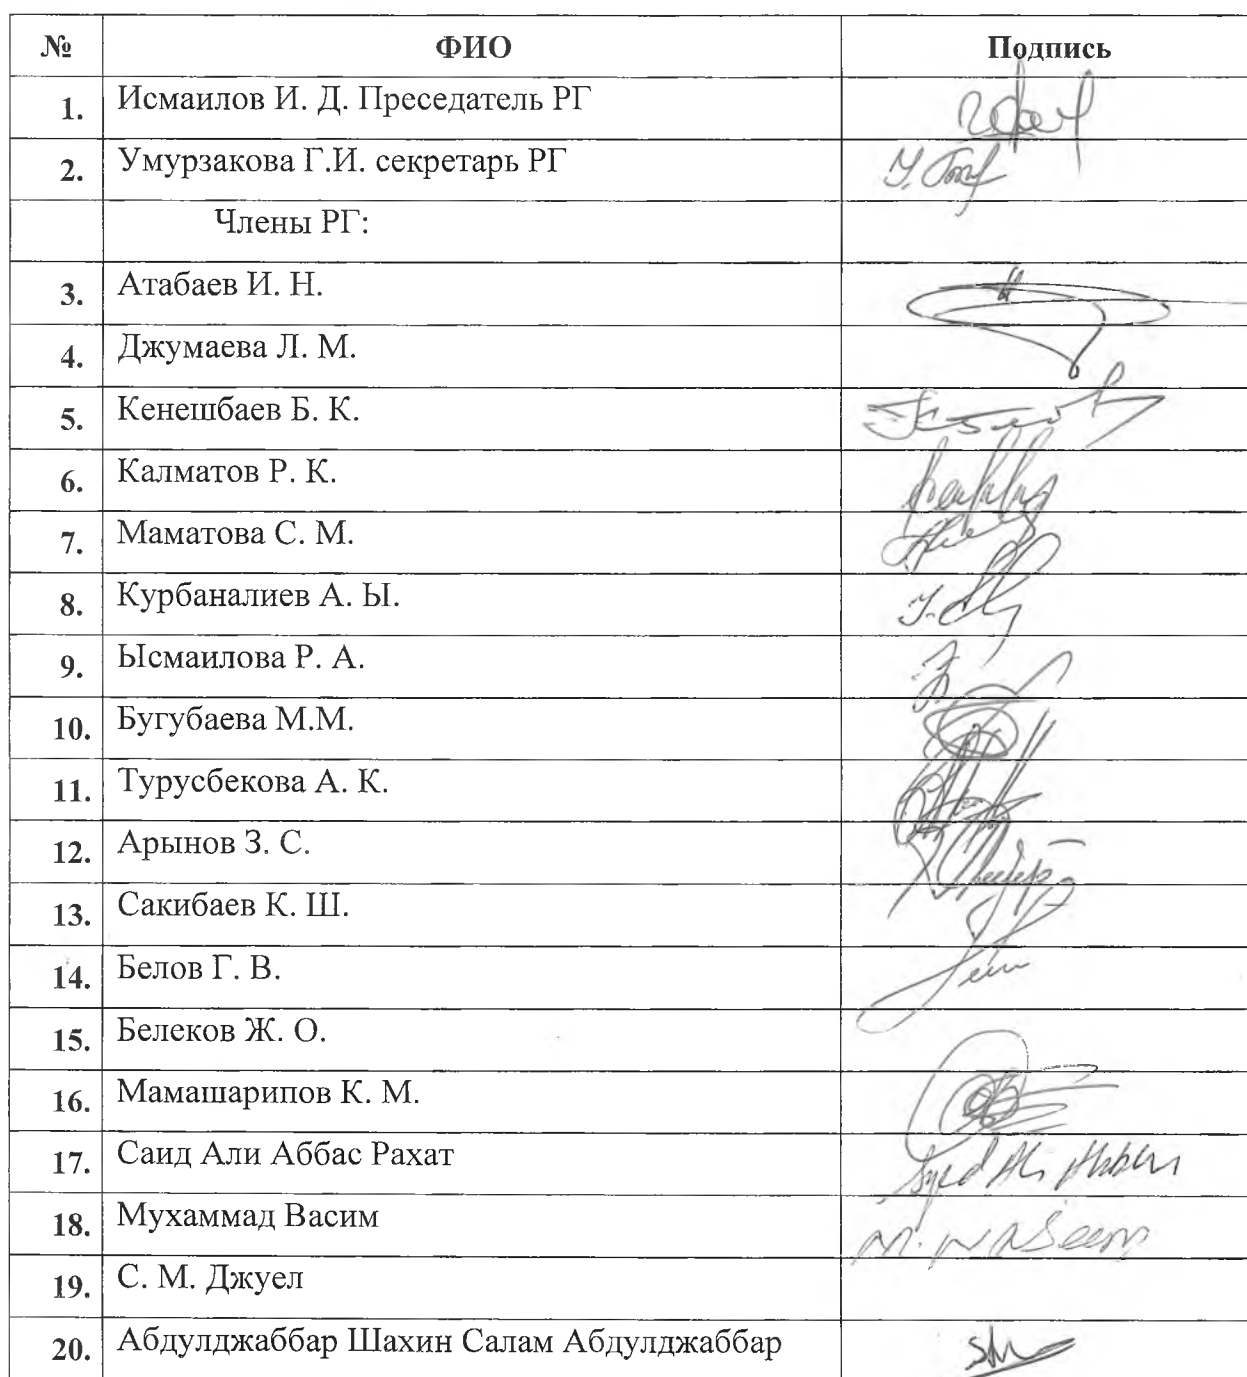 № ФИО Подпись
1. Исмаилов И. Д. Преседатель РГ
2. Умурзакова Г.И. секретарь РГ
Члены РГ:
3. Атабаев И. Н.
4. Джумаева Л. М.
5. Кенешбаев Б. К.
6. Калматов Р. К.
7. Маматова С. М.
8. Курбаналиев А. Ы.
9. Ысмаилова Р. А.
10. Бугубаева М.М.
11. Турусбекова А. К.
12. Арынов З. С.
13. Сакибаев К. Ш.
14. Белов Г. В.
15. Белеков Ж. О.
16. Мамашарипов К. М.
17. Саид Али Аббас Рахат Syed Ali Abbas
18. Мухаммад Васим M. WASeem
19. С. М. Джуел
20. Абдулджаббар Шахин Салам Абдулджаббар